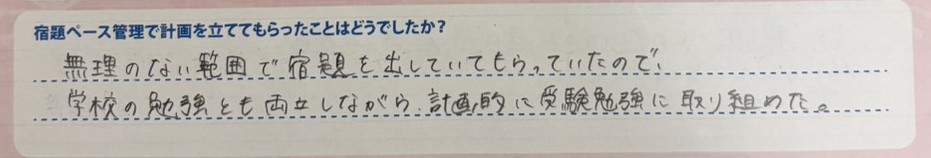 宿題ペース管理で計画を立ててもらったことはどうでしたか？
無理のない範囲で宿題を出していてもらっていたので、
学校の勉強とも両立しながら、計画的に受験勉強に取り組めた。